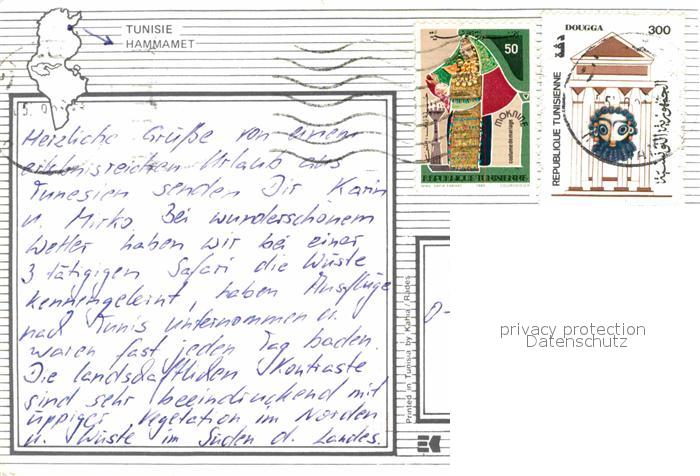 TUNISIE
HAMMAMET
50
MOKNINE
costume de mariage
REPUBLIQUE TUNISIENNE
1989
DOUGGA
300
دقة
REPUBLIQUE TUNISIENNE
الجمهورية التونسية
Herzliche Grüße von einem
erlebnisreichen Urlaub aus
Tunesien senden Dir Karin
u. Mirko Bei wunderschönem
Wetter haben wir bei einer
3 tätgigen Safari die Wüste
kennengelernt, haben Ausflüge
nach Tunis unternommen u.
waren fast jeden Tag baden.
Die landschaftlichen Kontraste
sind sehr beeindruckend mit
üppiger Vegetation im Norden
u. Wüste im Süden d. Landes.
Printed in Tunisia by Kahia / Rades
D-
privacy protection
Datenschutz